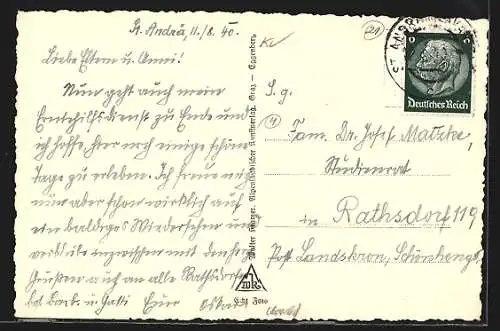 St. Andrä, 11./8. 40.
Liebe Eltern u. Anni!
Nun geht auch mein
Erntehilfsdienst zu Ende und
ich hoffe, hier noch einige schöne
Tage zu erleben. Ich freue mich
nun aber schon wirklich auf
ein baldiges Wiedersehen und
verbleibe inzwischen mit den herzl.
Grüßen auch an alle Rathsdorfer
bes. u. Euer Oskar
Kv
21
4
ST. ANDRÄ
6 6
Deutsches Reich
S. g.
Fam. Dr. Josef Matzke,
Studienrat
in Rathsdorf 119
Post Landskron, Schönhengst
Alpenländischer Kunstverlag, Graz - Eggenberg
Foto